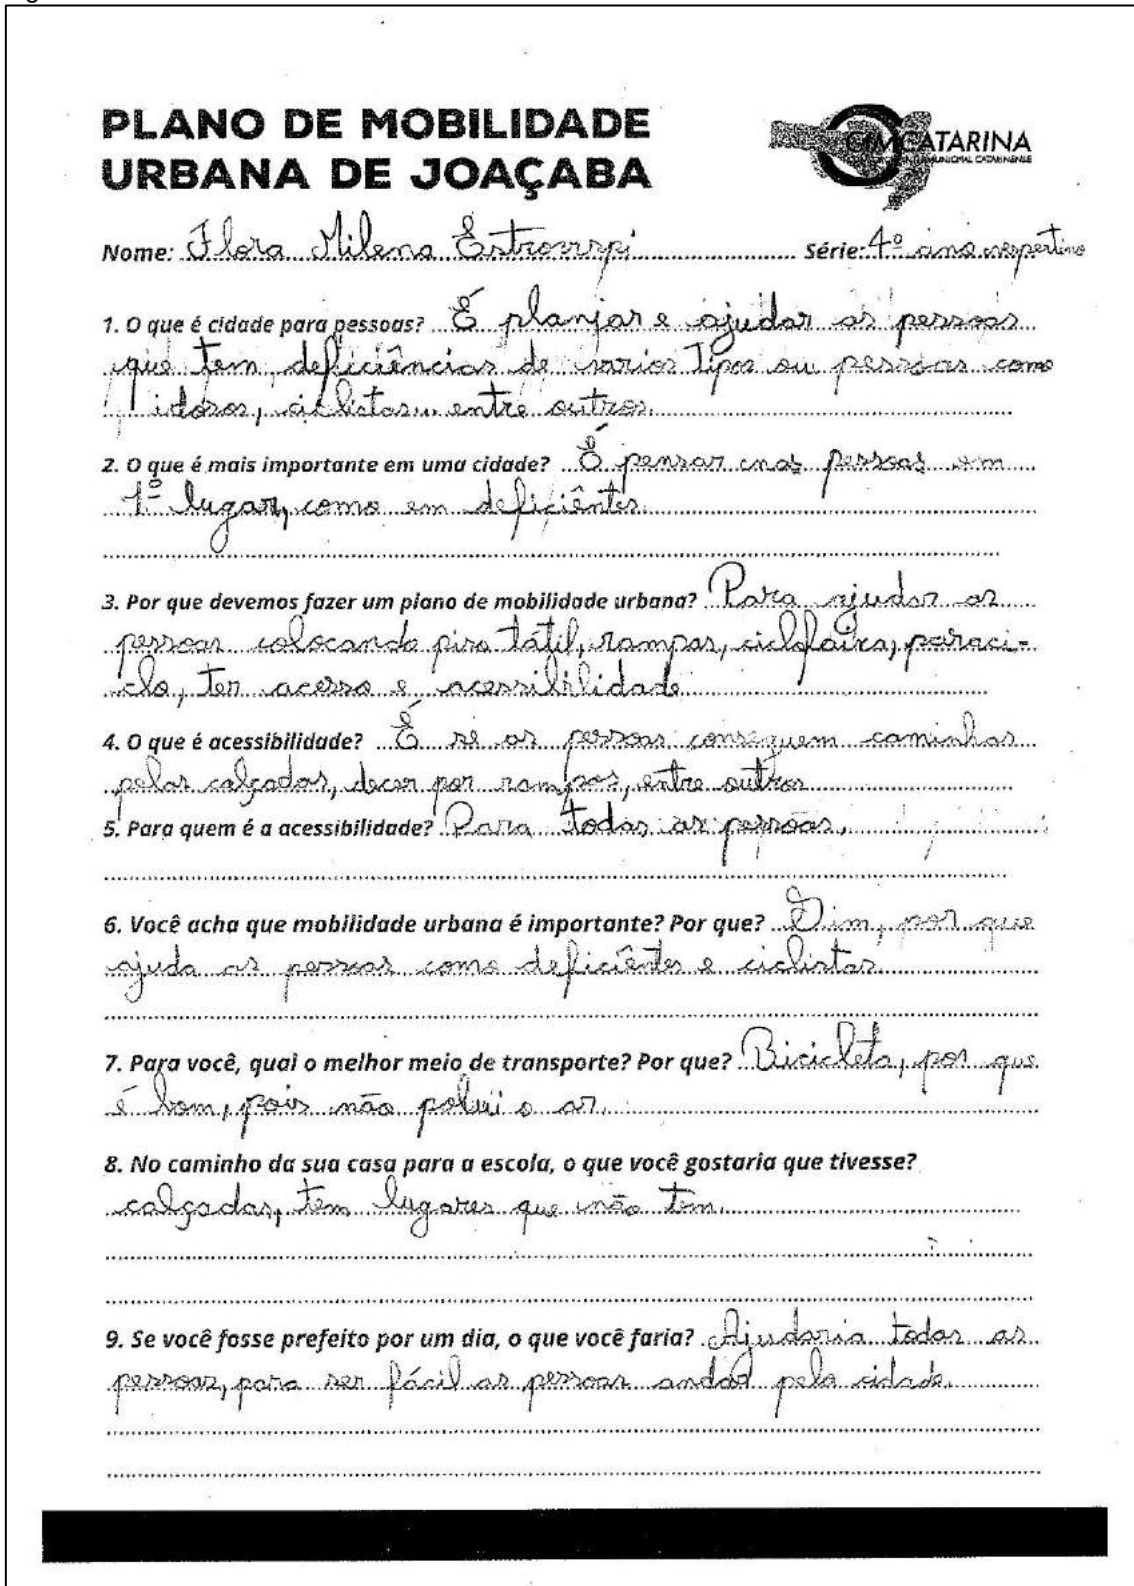 PLANO DE MOBILIDADE
URBANA DE JOAÇABA
CIMCATARINA
Nome: Flora Milena Série: 4º ano vespertino
1. O que é cidade para pessoas? É planjar e ajudar as pessoas
que tem deficiências de varios Tipos ou pessoas como
idosos, ciclistas... entre outros.
2. O que é mais importante em uma cidade? É pensar nas pessoas em
1º lugar, como em deficiêntes.
3. Por que devemos fazer um plano de mobilidade urbana? Para ajudar as
pessoas colocando piso tátil, rampas, ciclofaixa, paraci-
clo, ter acesso e acessibilidade
4. O que é acessibilidade? É se as pessoas conseguem caminhar
pelas calçadas, decer por rampas, entre outros
5. Para quem é a acessibilidade? Para todas as pessoas.
6. Você acha que mobilidade urbana é importante? Por que? Sim, por que
ajuda as pessoas como deficiêntes e ciclistas
7. Para você, qual o melhor meio de transporte? Por que? Bicicleta, por que
é bom, pois não polui o ar.
8. No caminho da sua casa para a escola, o que você gostaria que tivesse?
calçadas, tem lugares que não tem.
9. Se você fosse prefeito por um dia, o que você faria? Ajudaria todas as
pessoas, para ser fácil as pessoas andar pela cidade.